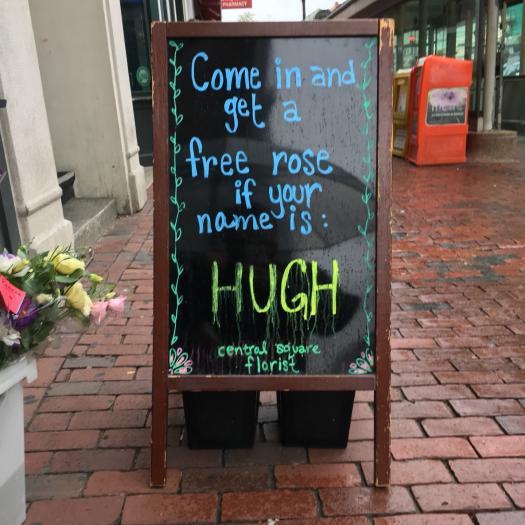 PHARMACY
Come in and
get a
free rose
if your
name is:
HUGH
central square
florist